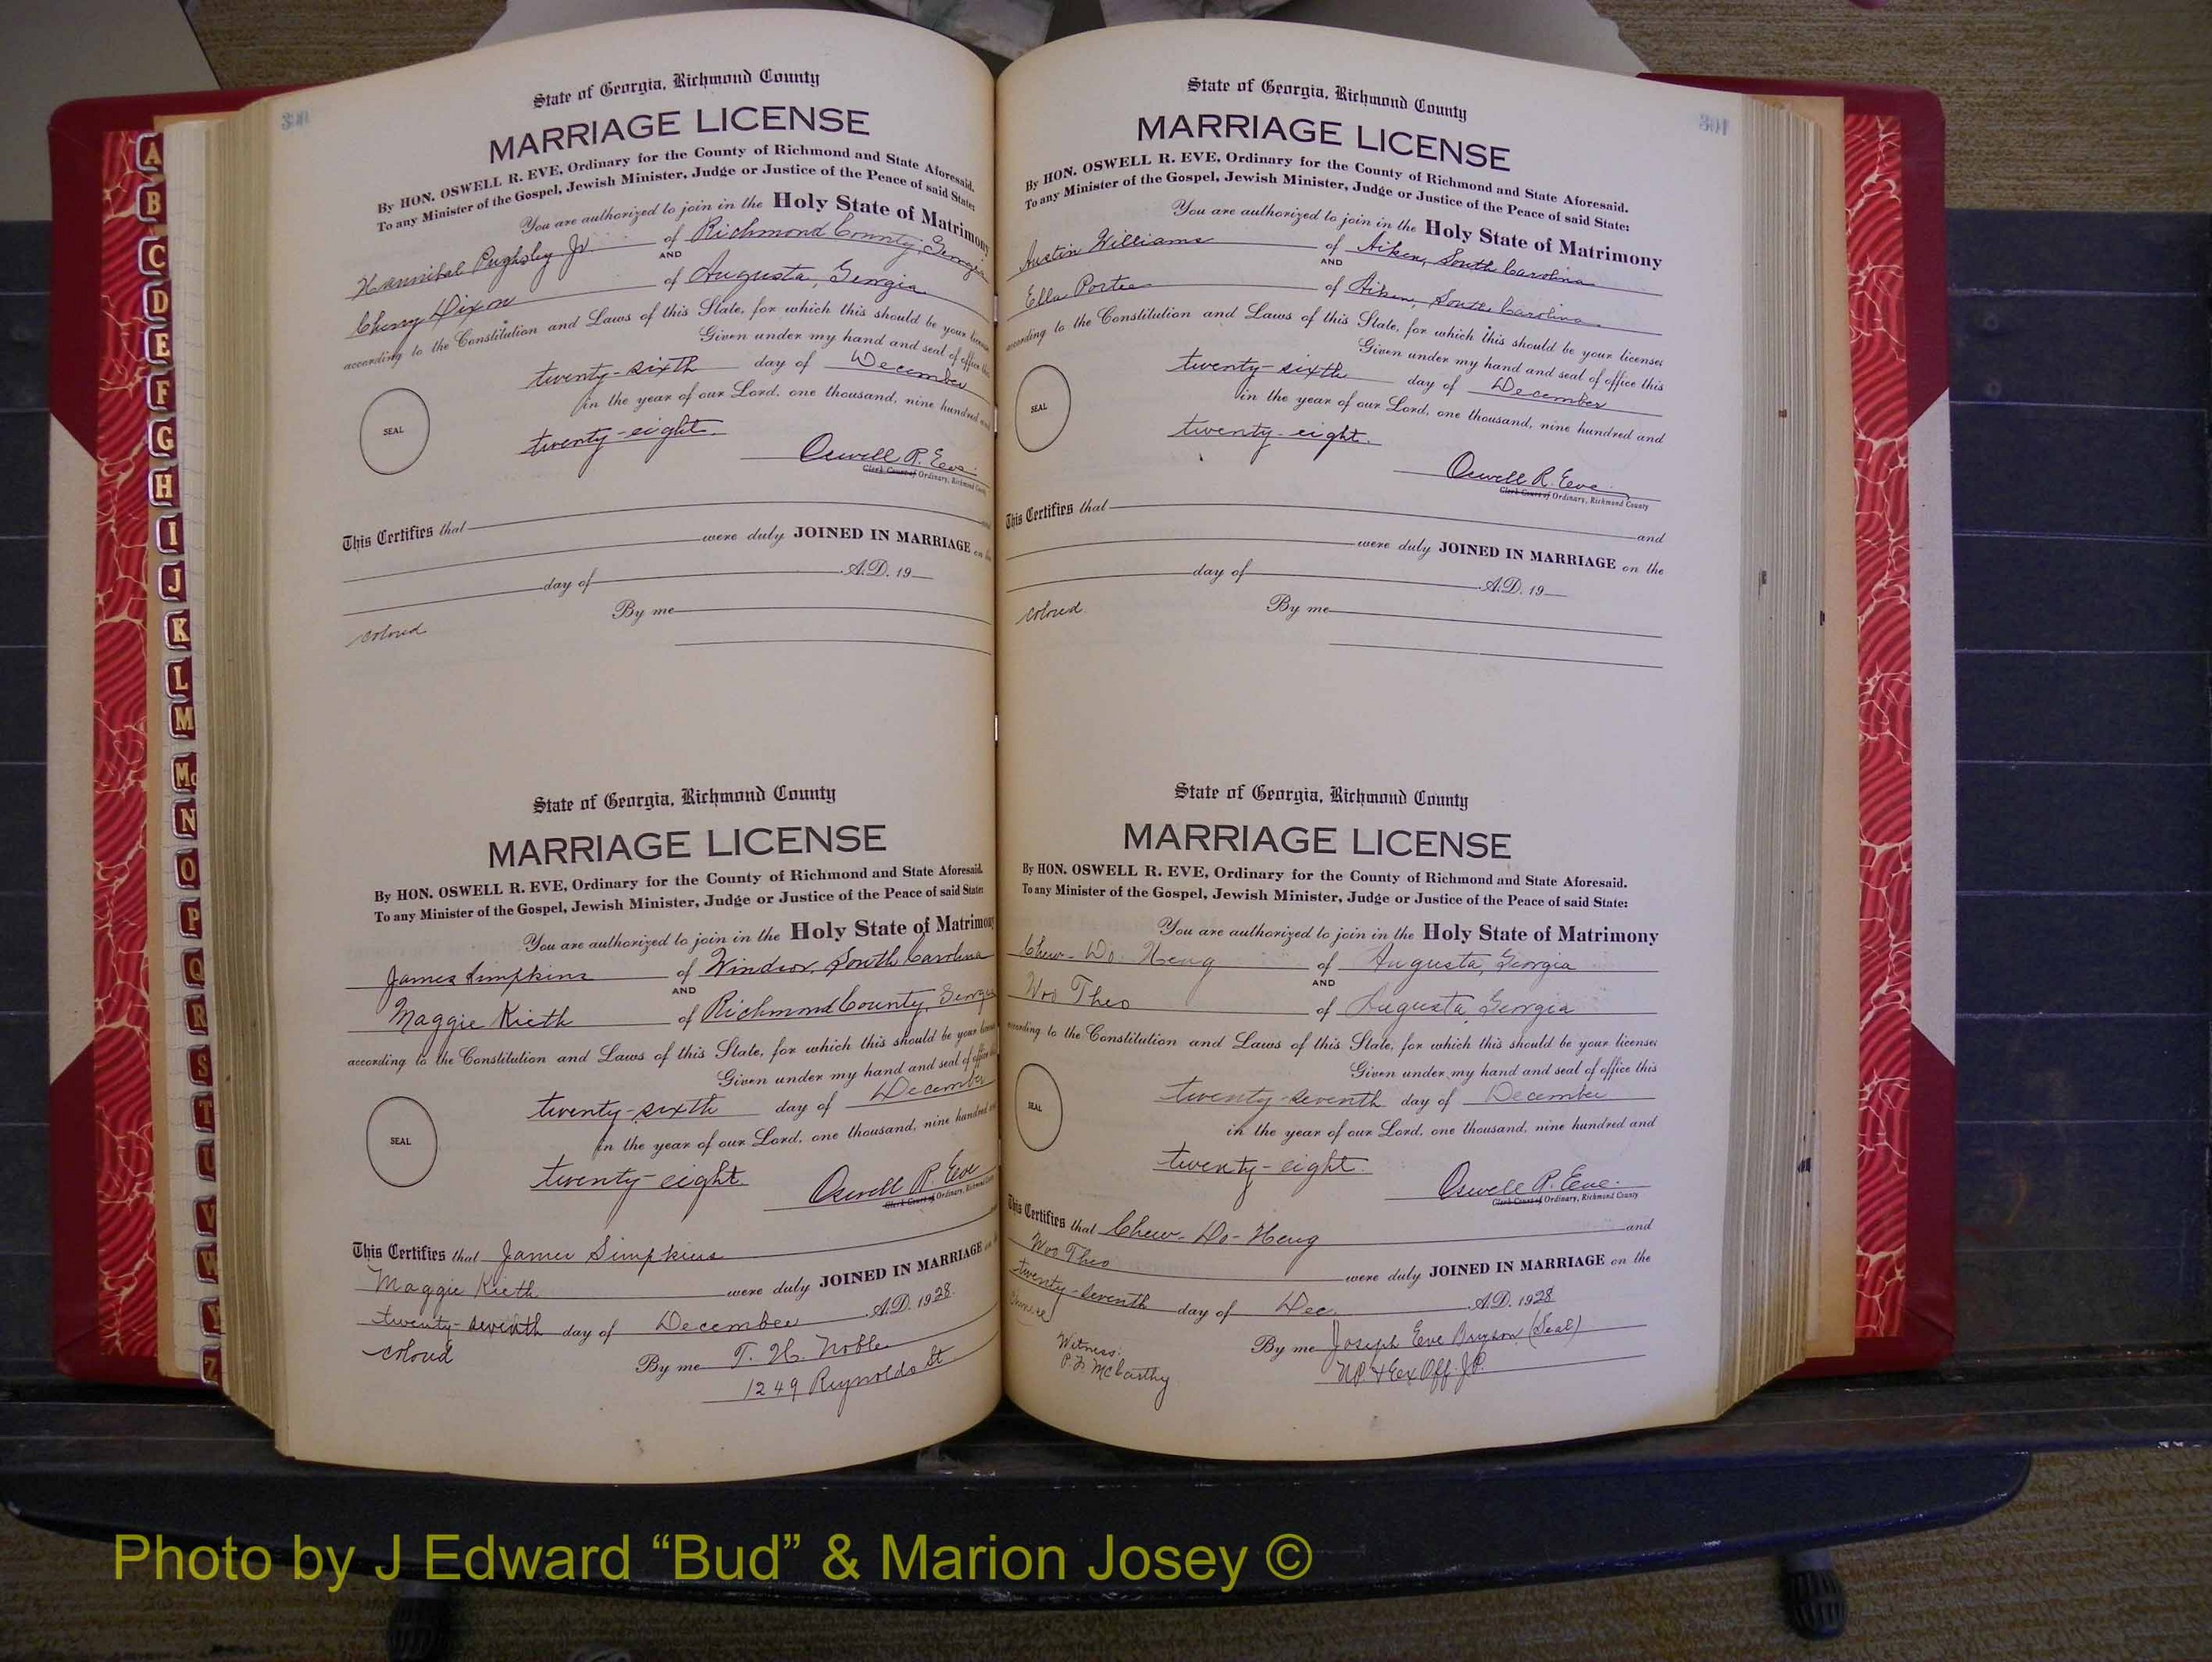 A
B
C
D
E
F
G
H
I
J
K
L
M
Mc
N
O
P
Q
R
S
T
U
V
W
Y
Z
State of Georgia, Richmond County
MARRIAGE LICENSE
By HON. OSWELL R. EVE, Ordinary for the County of Richmond and State Aforesaid.
To any Minister of the Gospel, Jewish Minister, Judge or Justice of the Peace of said State:
You are authorized to join in the Holy State of Matrimony
Hannibal Pughsley Jr. of Richmond County, Georgia
AND
Cherry Dixon of Augusta, Georgia
according to the Constitution and Laws of this State, for which this should be your license
Given under my hand and seal of office this
twenty-sixth day of December
in the year of our Lord, one thousand, nine hundred and
SEAL
twenty-eight.
Oswell R. Eve
Clerk Court of Ordinary, Richmond County
This Certifies that and
were duly JOINED IN MARRIAGE on the
day of A.D. 19
By me
colored
State of Georgia, Richmond County
MARRIAGE LICENSE
By HON. OSWELL R. EVE, Ordinary for the County of Richmond and State Aforesaid.
To any Minister of the Gospel, Jewish Minister, Judge or Justice of the Peace of said State:
You are authorized to join in the Holy State of Matrimony
James Simpkins of Windsor, South Carolina
AND
Maggie Kieth of Richmond County, Georgia
according to the Constitution and Laws of this State, for which this should be your license
Given under my hand and seal of office this
twenty-sixth day of December
in the year of our Lord, one thousand, nine hundred and
SEAL
twenty-eight.
Oswell R. Eve
Clerk Court of Ordinary, Richmond County
This Certifies that James Simpkins
Maggie Kieth were duly JOINED IN MARRIAGE on
twenty-seventh day of December A.D. 1928.
colored
By me T. H. Noble
1249 Reynolds St.
State of Georgia, Richmond County
MARRIAGE LICENSE
By HON. OSWELL R. EVE, Ordinary for the County of Richmond and State Aforesaid.
To any Minister of the Gospel, Jewish Minister, Judge or Justice of the Peace of said State:
You are authorized to join in the Holy State of Matrimony
Austin Williams of Aiken, South Carolina
AND
Ella Portee of Aiken, South Carolina
according to the Constitution and Laws of this State, for which this should be your licenses
Given under my hand and seal of office this
twenty-sixth day of December
in the year of our Lord, one thousand, nine hundred and
SEAL
twenty-eight.
Oswell R. Eve
Clerk Court of Ordinary, Richmond County
This Certifies that and
were duly JOINED IN MARRIAGE on the
day of A.D. 19
By me
colored
State of Georgia, Richmond County
MARRIAGE LICENSE
By HON. OSWELL R. EVE, Ordinary for the County of Richmond and State Aforesaid.
To any Minister of the Gospel, Jewish Minister, Judge or Justice of the Peace of said State:
You are authorized to join in the Holy State of Matrimony
Chew-Do-Heng of Augusta, Georgia
AND
Woo Theo of Augusta, Georgia
according to the Constitution and Laws of this State, for which this should be your licenses
Given under my hand and seal of office this
twenty-seventh day of December
in the year of our Lord, one thousand, nine hundred and
SEAL
twenty-eight.
Oswell R. Eve.
Clerk Court of Ordinary, Richmond County
This Certifies that Chew-Do-Heng and
Woo Theo were duly JOINED IN MARRIAGE on the
twenty-seventh day of Dec. A.D. 1928
By me Joseph Eve Bryson (Seal)
N.P. & Ex Off. J.P.
Witness:
P. F. McCarthy
Photo by J Edward “Bud” & Marion Josey ©